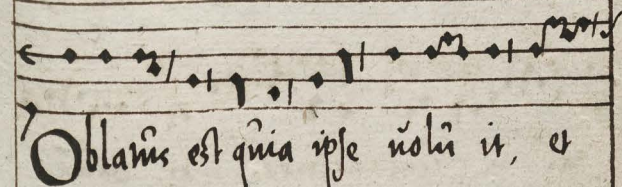 Oblatus est quia ipse uolu it, et